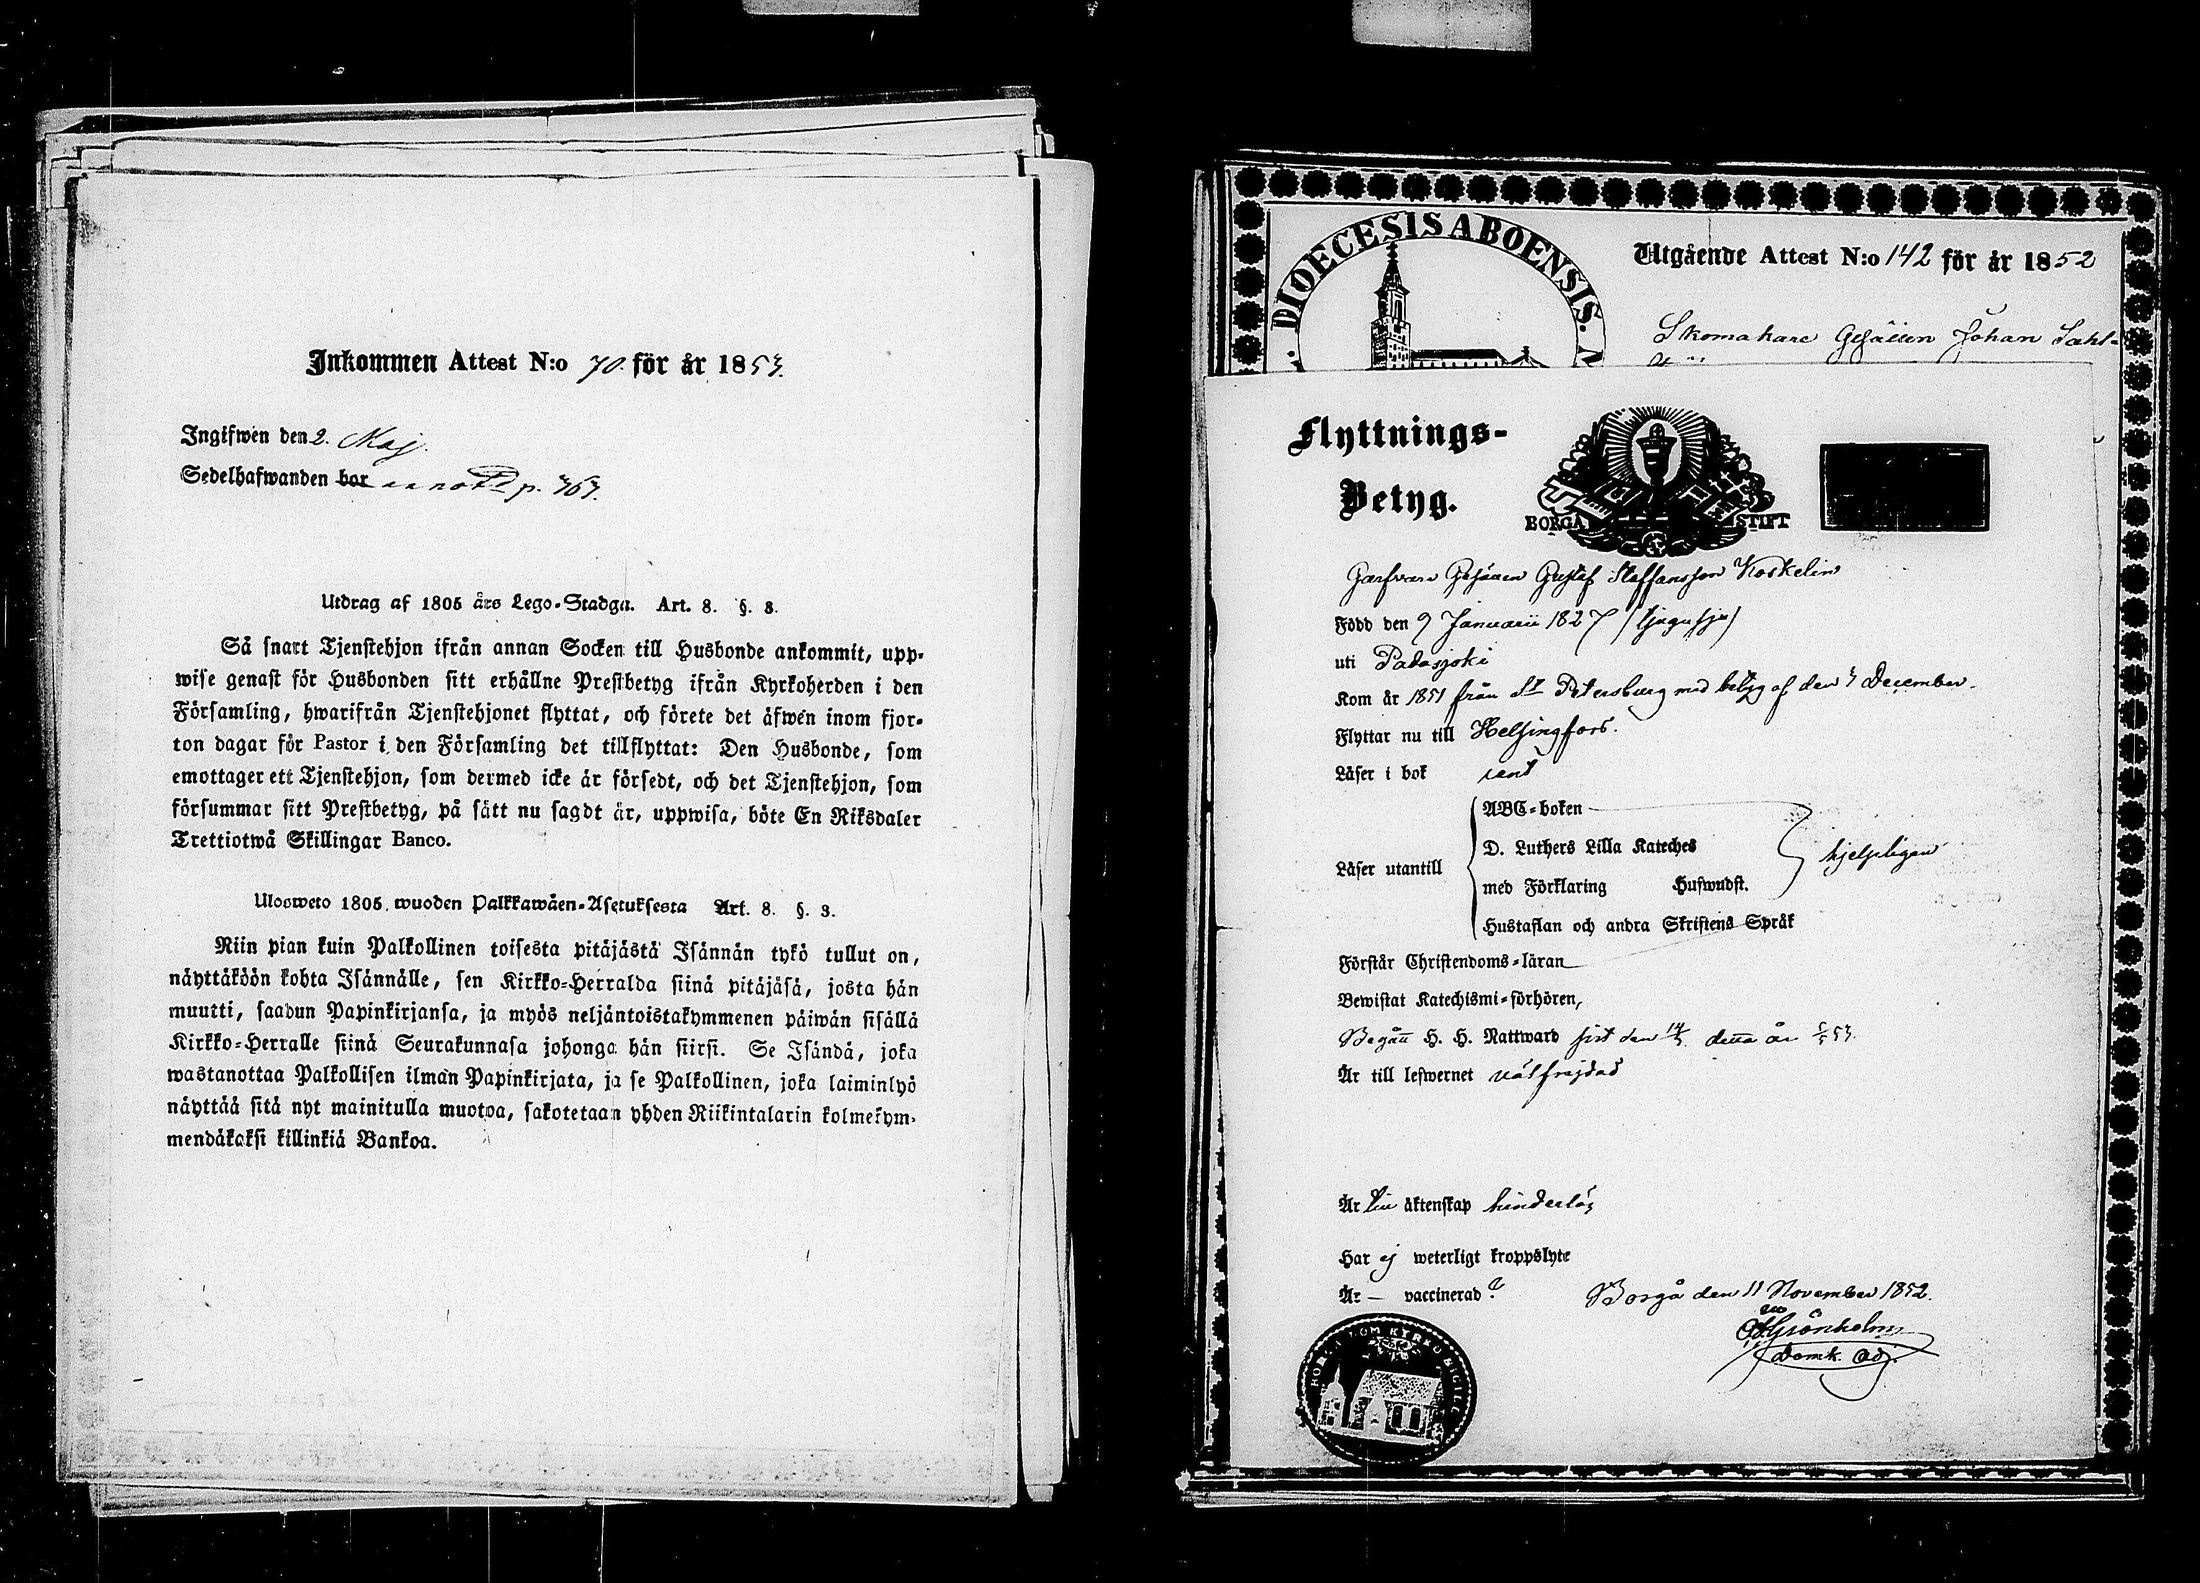 Inkommen Attest N:o 70. för år 1853.
Ingifwen den 2. Maj.
Sedelhafwanden bor annot. p. 763.
Utdrag af 1805 års Lego-Stadga. Art. 8. §. 3.
Så snart Tjenstehjon ifrån annan Socken till Husbonde ankommit, upp-
wise genast för Husbonden sitt erhållne Prestbetyg ifrån Kyrkoherden i den
Församling, hwarifrån Tjenstehjonet flyttat, och förete det äfwen inom fjor-
ton dagar för Pastor i den Församling det tillflyttat: Den Husbonde, som
emottager ett Tjenstehjon, som dermed icke är försedt, och det Tjenstehjon, som
försummar sitt Prestbetyg, på sätt nu sagdt är, uppwisa, böte En Riksdaler
Trettiotwå Skillingar Banco.
Ulosweto 1805. wuoden Palkkawäen-Asetuksesta Art. 8. §. 3.
Niin pian kuin Palkollinen toisesta pitäjästä Isännän tykö tullut on,
näyttäköön kohta Isännälle, sen Kirkko-Herralda siinä pitäjäsä, josta hän
muutti, saadun Papinkirjansa, ja myös neljäntoistakymmenen päiwän sisällä
Kirkko-Herralle siinä Seurakunnasa johonga hän siirsi. Se Isändä, joka
wastanottaa Palkollisen ilman Papinkirjata, ja se Palkollinen, joka laiminlyö
näyttää sitä nyt mainitulla muotoa, sakotetaan yhden Riikintalarin kolmekym-
mendäkaksi killinkiä Bankoa.
DIOECESIS ABOENSIS.
Utgående Attest N:o 142 för år 1852
Skomakare Gesällen Johan Sahl-
Flyttnings-
Betyg.
BORGÅ STIFT
Garfvare Gesällen Gustaf Staffansson Koskelin
Född den 9 Januarii 1827 (tjugusju)
uti Padasjoki
Kom år 1851 från St Petersburg med betyg af den 3 December.
Flyttar nu till Helsingfors.
Läser i bok rent
ABC-boken
D. Luthers Lilla Kateches
Läser utantill
hjelpligen
med Förklaring Huswudst.
Hustaflan och andra Skriftens Språk
Förstår Christendoms-läran
Bewistat Katechismi-förhören,
Begått H. H. Nattward sist den detta år
Är till lefwernet välfrejdad
Är till äktenskap hinderlös
Har ej weterligt kroppslyte
Är — vaccinerad?
Borgå den 11 November 1852.
Grönholm
Domk. Adj.